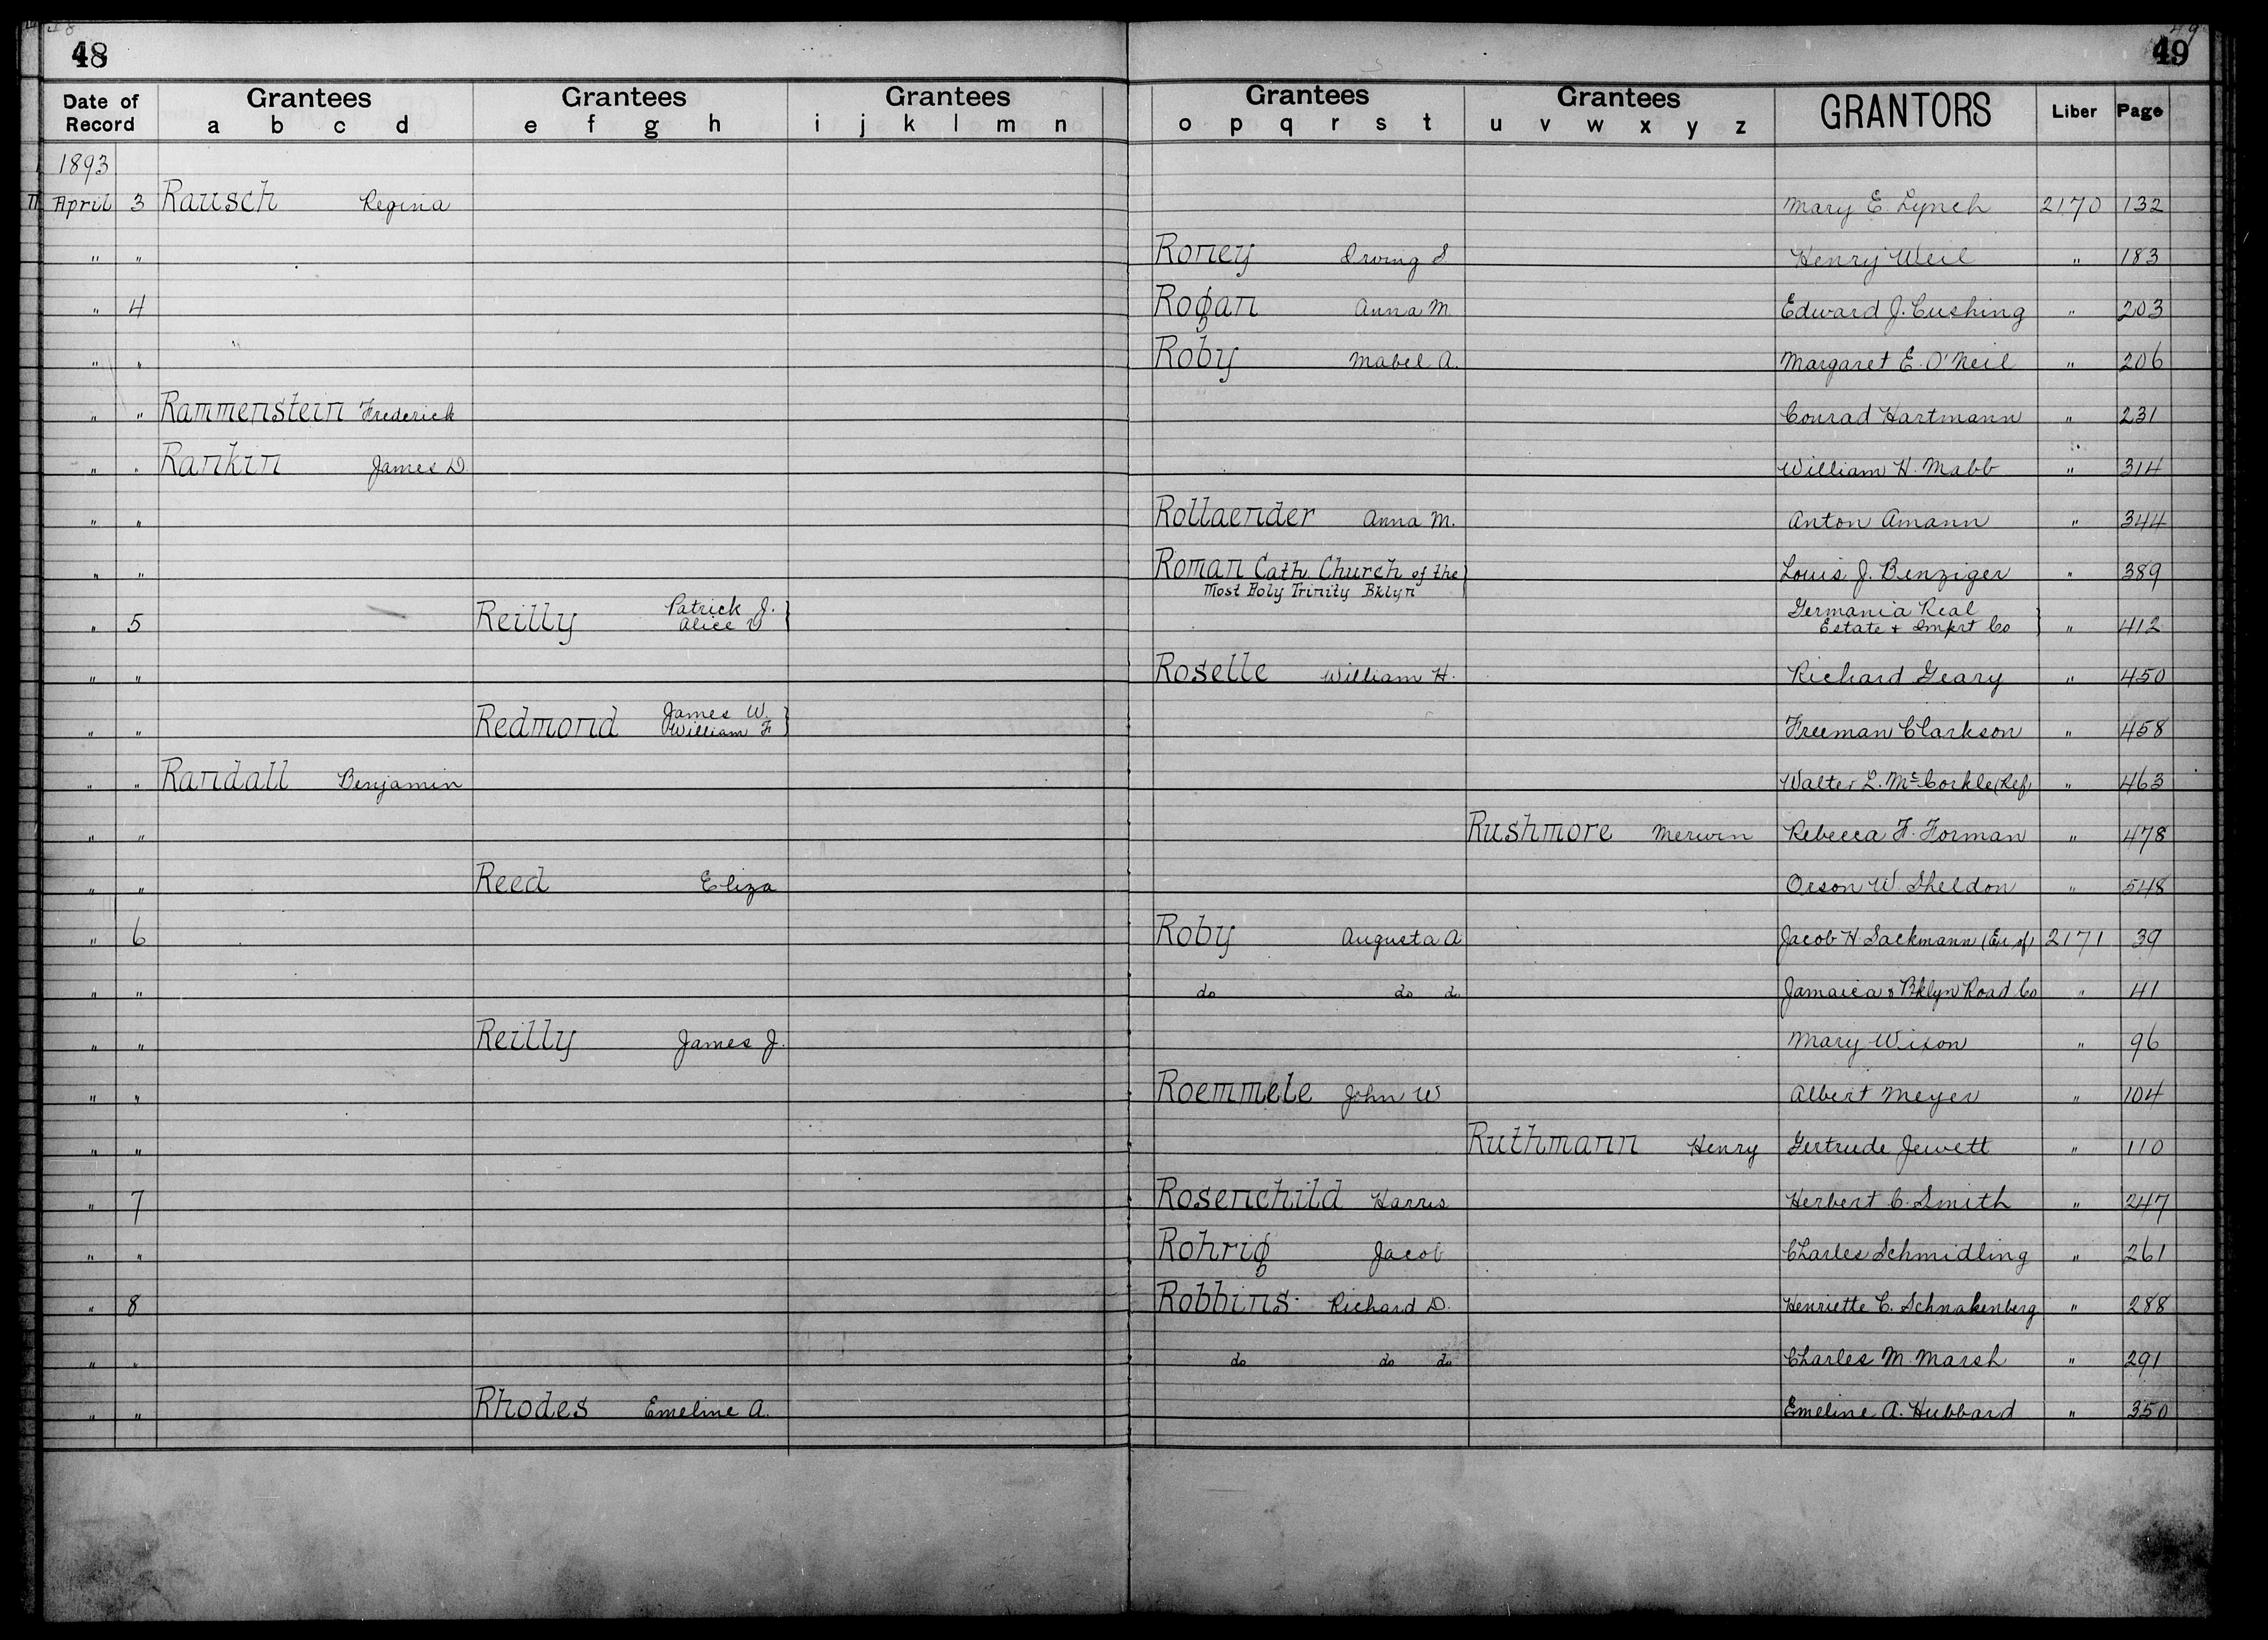 48
49
Date of Record
Grantees a b c d
Grantees e f g h
Grantees i j k l m n
Grantees o p q r s t
Grantees u v w x y z
GRANTORS
Liber
Page
1893
April 3 Rausch Regina Mary E. Lynch 2170 132
" " Roney Irving S Henry Weil " 183
" 4 Rogan Anna M Edward J. Cushing " 203
" " Roby Mabel A. Margaret E. O'Neil " 206
" " Rammenstein Frederick Conrad Hartmann " 231
" " Rankin James D. William H. Mabb " 314
" " Rollaender Anna M. Anton Amann " 344
" " Roman Cath. Church of the Louis J. Benziger " 389
Most Holy Trinity Bklyn
" 5 Reilly Patrick J. Germania Real
Alice V } Estate & Imprt Co } " 412
" " Roselle William H. Richard Geary " 450
" " Redmond James W.
William F } Freeman Clarkson " 458
" " Randall Benjamin Walter L. McCorkle (Ref) " 463
" " Rushmore Merwin Rebecca F. Forman " 478
" " Reed Eliza Orson W. Sheldon " 548
" 6 Roby Augusta A Jacob H Sackmann (Ex of) 2171 39
" " do do do Jamaica & Bklyn Road Co " 41
" " Reilly James J. Mary Wixon " 96
" " Roemmele John W Albert Meyer " 104
" " Ruthmann Henry Gertrude Jewett " 110
" 7 Rosenchild Harris Herbert C. Smith " 247
" " Rohrig Jacob Charles Schmidling " 261
" 8 Robbins Richard D. Henriette C. Schnakenberg " 288
" " do do do Charles M. Marsh " 291
" " Rhodes Emeline A. Emeline A. Hubbard " 350